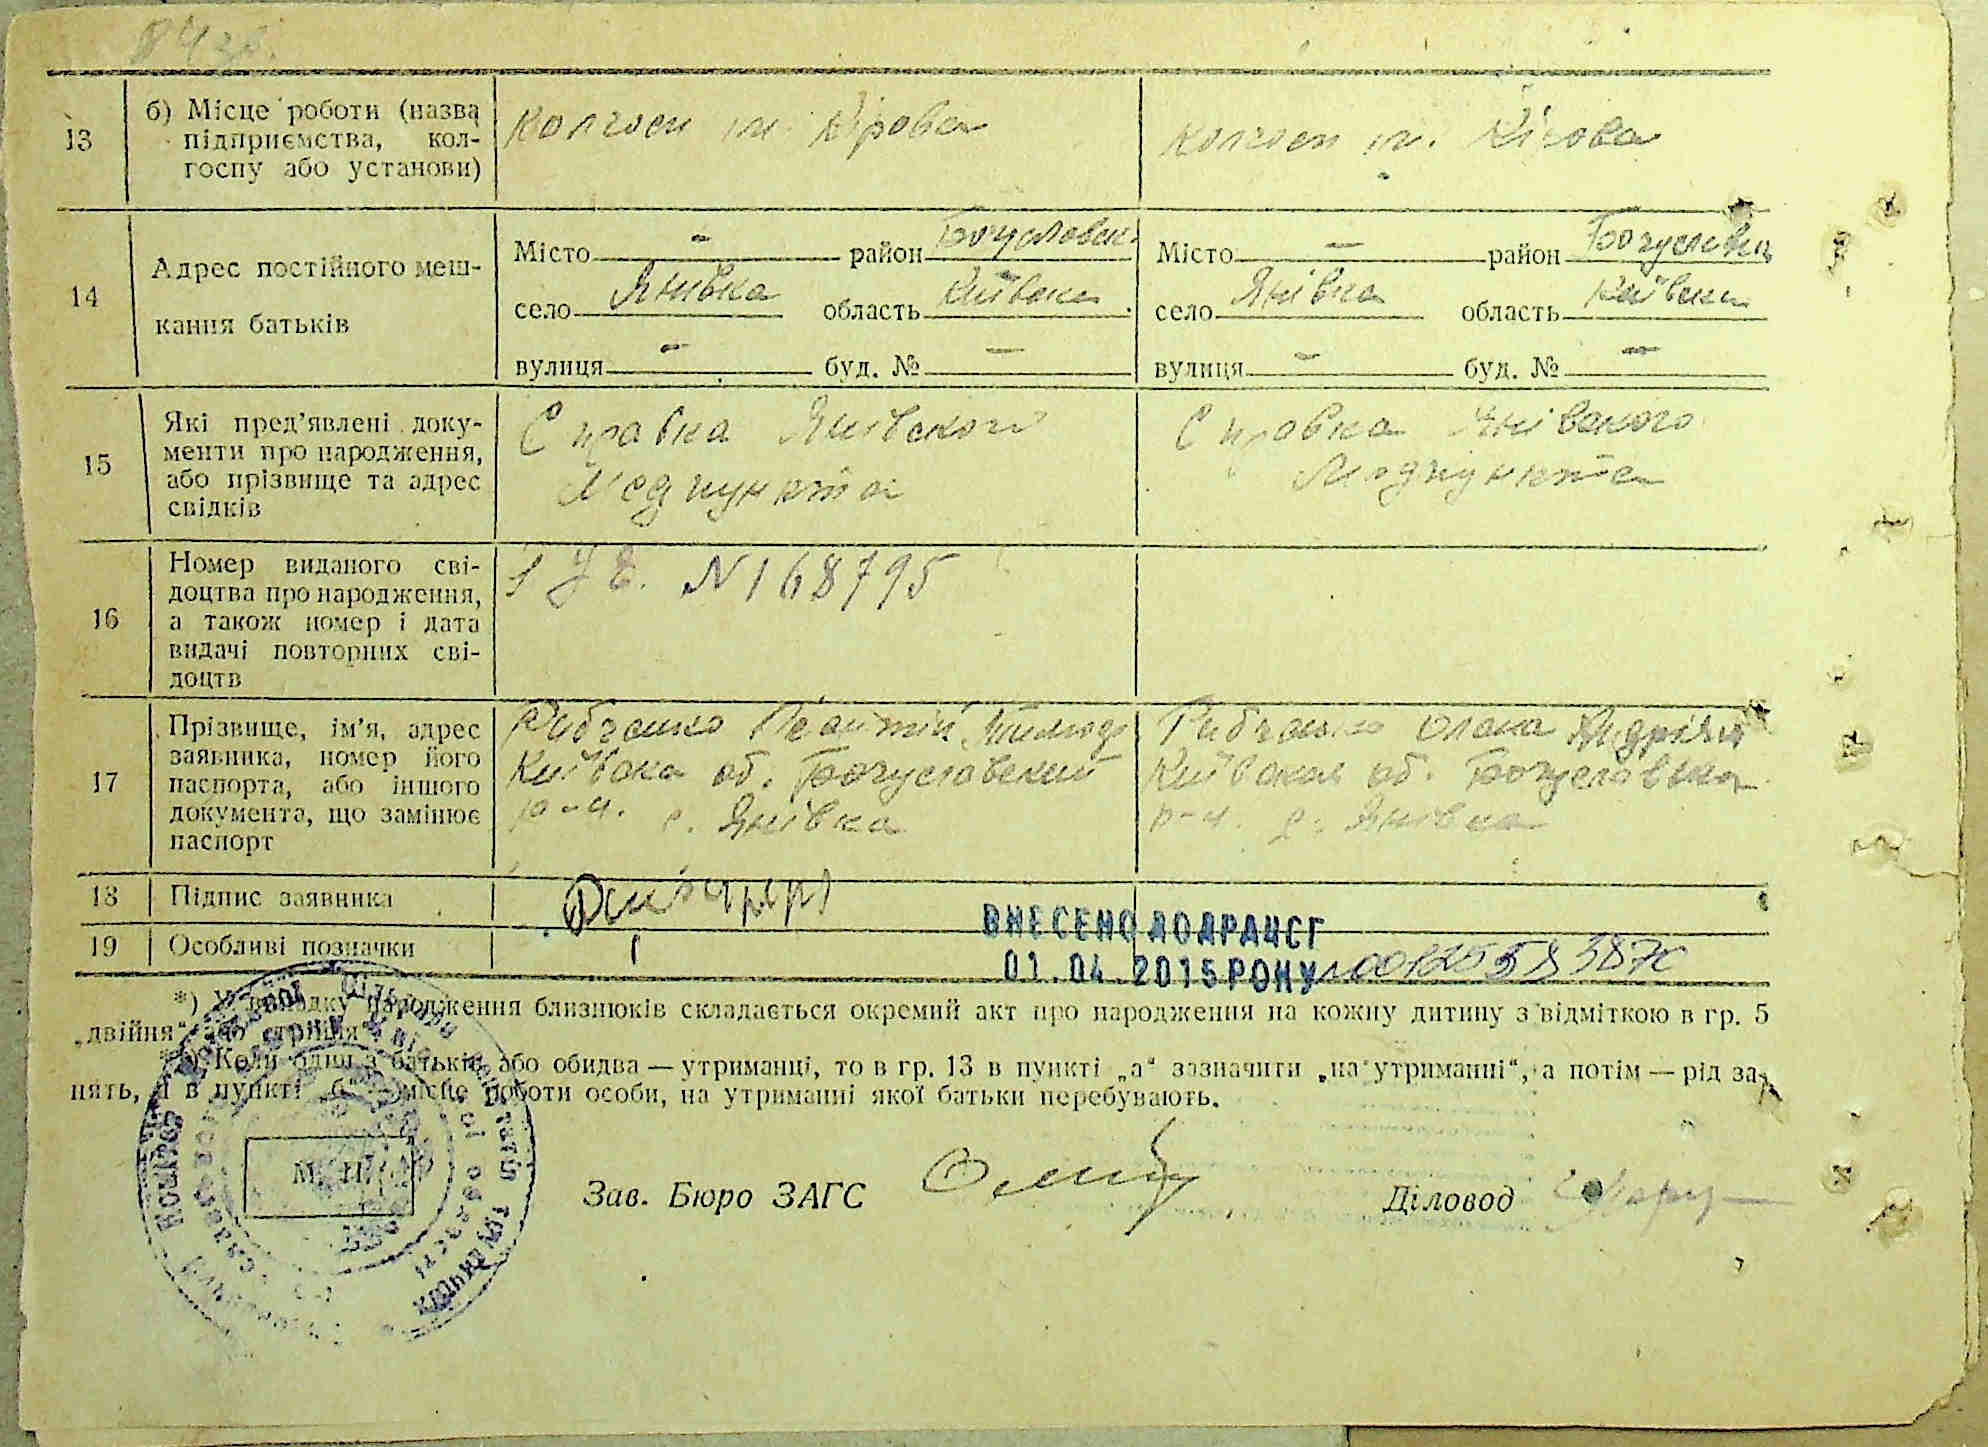 13
б) Місце роботи (назва
підприємства, кол-
госпу або установи)
колгосп ім. Кірова
колгосп ім. Кірова
14
Адрес постійного меш-
кання батьків
Місто — район Богуславськ.
село Янівка область Київська
вулиця — буд. № —
Місто — район Богуславськ
село Янівка область Київська
вулиця — буд. № —
15
Які пред’явлені доку-
менти про народження,
або прізвище та адрес
свідків
Справка Янівского
Медпункта
Справка Янівского
Медпункта
16
Номер виданого сві-
доцтва про народження,
а також номер і дата
видачі повторних сві-
доцтв
N 168795
17
Прізвище, ім’я, адрес
заявника, номер його
паспорта, або іншого
документа, що замінює
паспорт
Рибченко
Київска об. Богуславский
р-н. с. Янівка
Рибченко Олена Андріївн
Київская об. Богуславска
р-н. с. Янівка
18
Підпис заявника
19
Особливі позначки
ВНЕСЕНО ДО ДРАЦСГ
01.04.2015 РОКУ
*) У випадку народження близнюків складається окремий акт про народження на кожну дитину з відміткою в гр. 5
„двійня“ або „трійня“.
**) Коли один з батьків або обидва — утриманці, то в гр. 13 в пункті „а“ зазначити „на утриманні“, а потім — рід за-
нять, а в пункті „б“ — місце роботи особи, на утриманні якої батьки перебувають.
М. П.
Зав. Бюро ЗАГС
Діловод